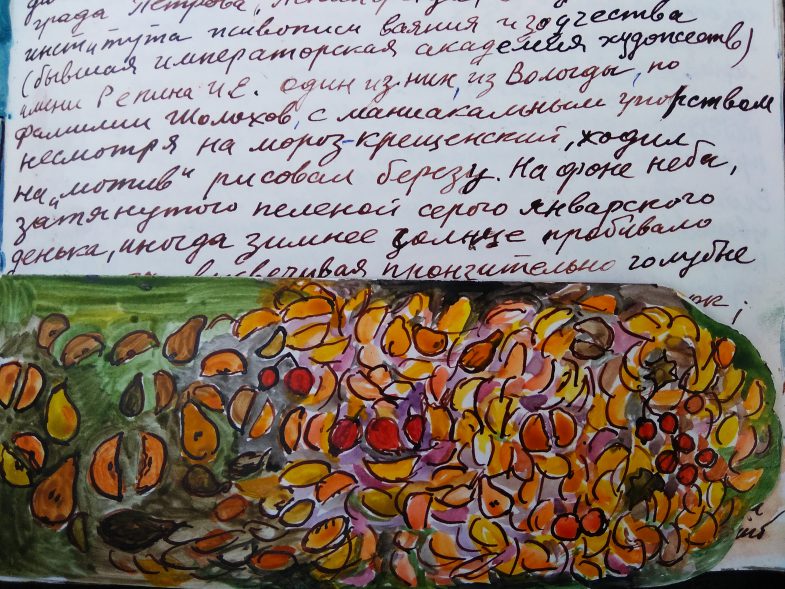 града Петрова,
института живописи ваяния и зодчества
(бывшая императорская академия художеств)
имени Репина И.Е. один из них, из Вологды, по
фамилии Шолохов, с маниакальным упорством
несмотря на мороз-крещенский, ходил
на „мотив“ рисовал березу. На фоне неба,
затянутого пеленой серого январского
денька, иногда зимнее солнце пробивало
высвечивая пронзительно голубые